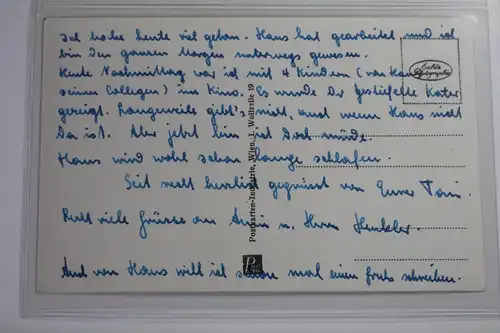 Ich habe heute viel getan. Hans hat gearbeitet und ich
bin den ganzen Morgen unterwegs gewesen.
Heute Nachmittag war ich mit 4 Kindern (von Hans
seinen Collegen) im Kino. Es wurde Der gestiefelte Kater
gezeigt. Langeweile gibt's nicht, auch wenn Hans nicht
da ist. Aber jetzt bin ich doch müde.
Hans wird wohl schon lange schlafen.
Seid recht herzlich gegrüsst von Eurer
Recht viele Grüsse an u. Herrn
Auch von Hans will ich schon mal einen Gruss schreiben.
Echte Photographie
Postkarten-Industrie, Wien, I. Wollzeile 19